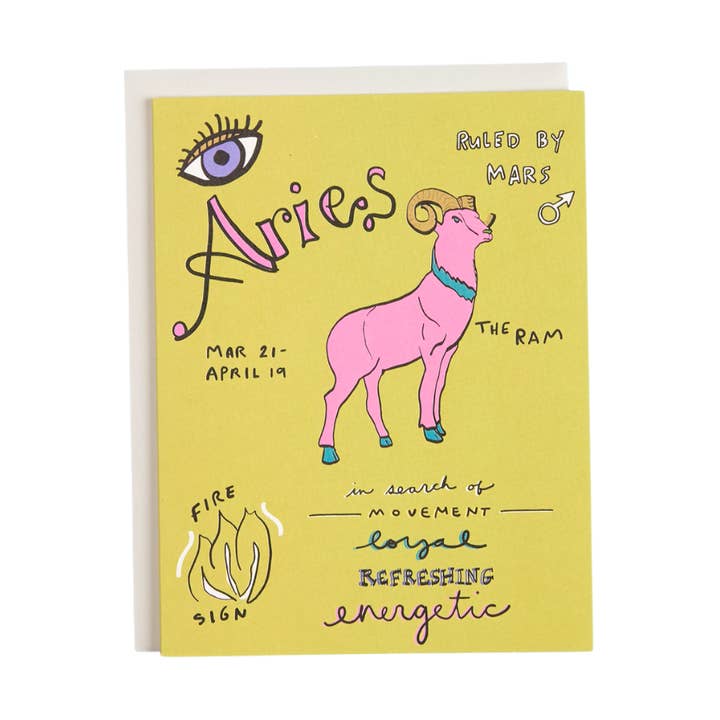 RULED BY
MARS
Aries
THE RAM
MAR 21-
APRIL 19
in search of
MOVEMENT
loyal
REFRESHING
energetic
FIRE
SIGN